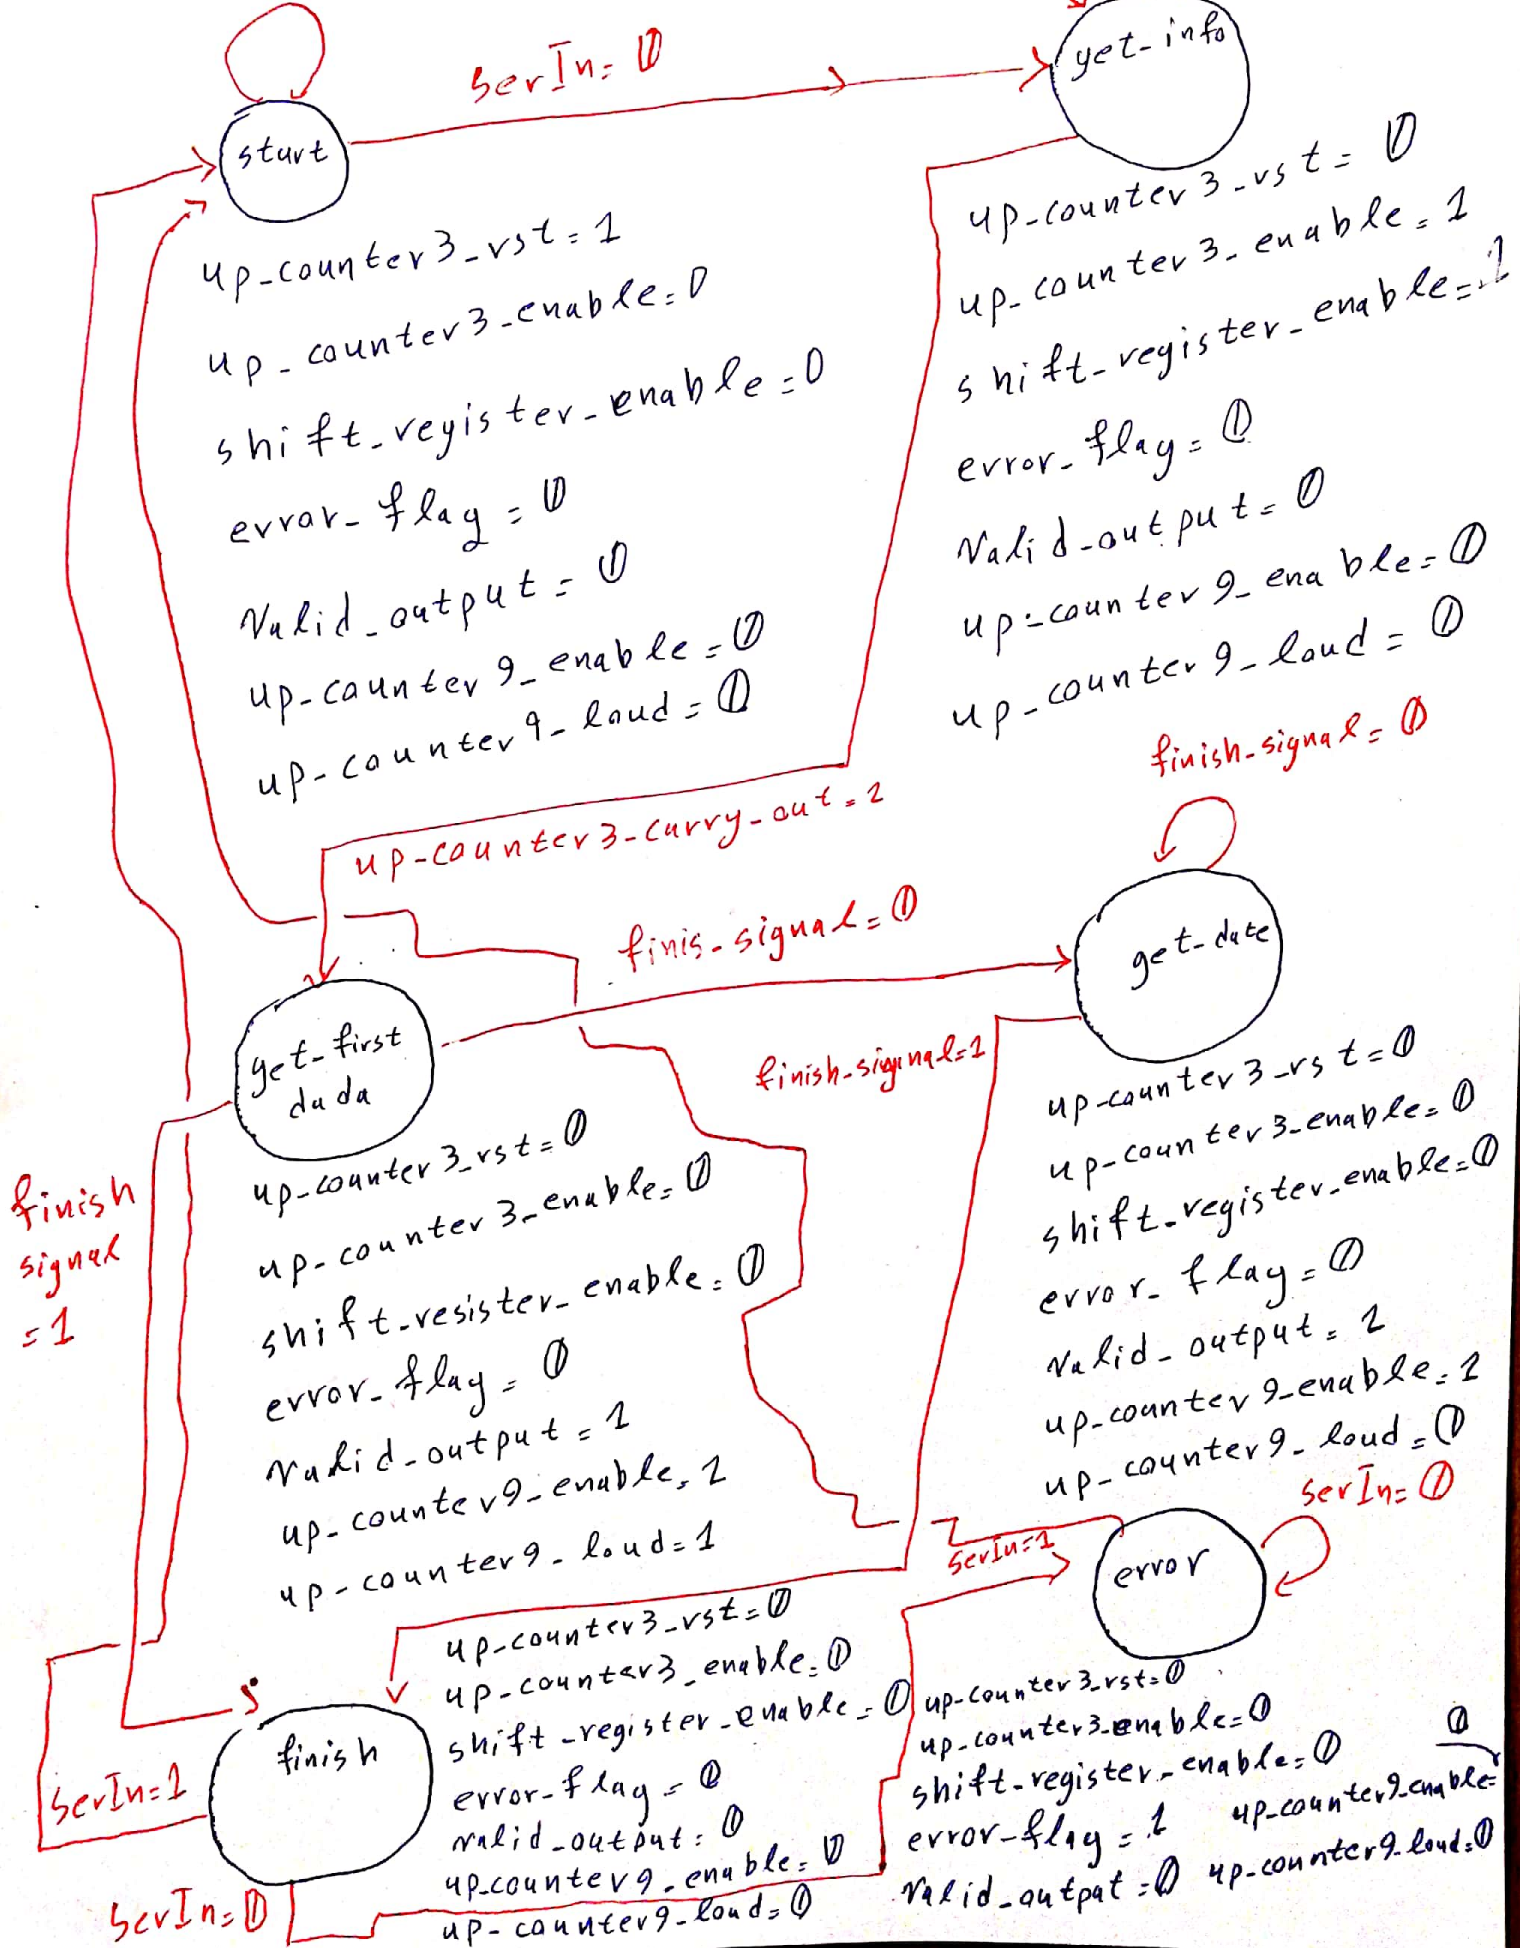 serIn=0
get-info
start
up-counter3-rst=1
up-counter3-enable=0
shift-register-enable=0
error-flag=0
Valid-output=0
up-counter9-enable=0
up-counter9-load=0
up-counter3-rst=0
up-counter3-enable=1
shift-register-enable=1
error-flag=0
Valid-output=0
up-counter9-enable=0
up-counter9-load=0
finish-signal=0
up-counter3-carry-out=1
finis-signal=0
get-date
get-first
dada
finish-signal=1
up-counter3-rst=0
up-counter3-enable=0
shift-register-enable=0
error-flag=0
Valid-output=1
up-counter9-enable=1
up-counter9-load=0
finish
signal
=1
up-counter3-rst=0
up-counter3-enable=0
shift-resister-enable=0
error-flag=0
Valid-output=1
up-counter9-enable=1
up-counter9-load=1
serIn=0
serIn=1
error
up-counter3-rst=0
up-counter3-enable=0
shift-register-enable=0
error-flag=0
valid-output=0
up-counter9-enable=0
up-counter9-load=0
finish
serIn=1
serIn=0
up-counter3-rst=0
up-counter3-enable=0
shift-register-enable=0
error-flag=1
Valid-output=0
0
up-counter9-enable=
up-counter9-load=0